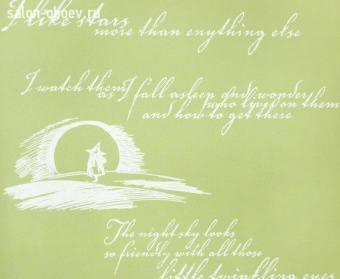 I like stars
salon-oboev.ru
more than enything else
I watch them
as I fall asleep and wonder
who lives on them
and how to get there
The night sky looks
so friendly with all those
little twinkling eyes